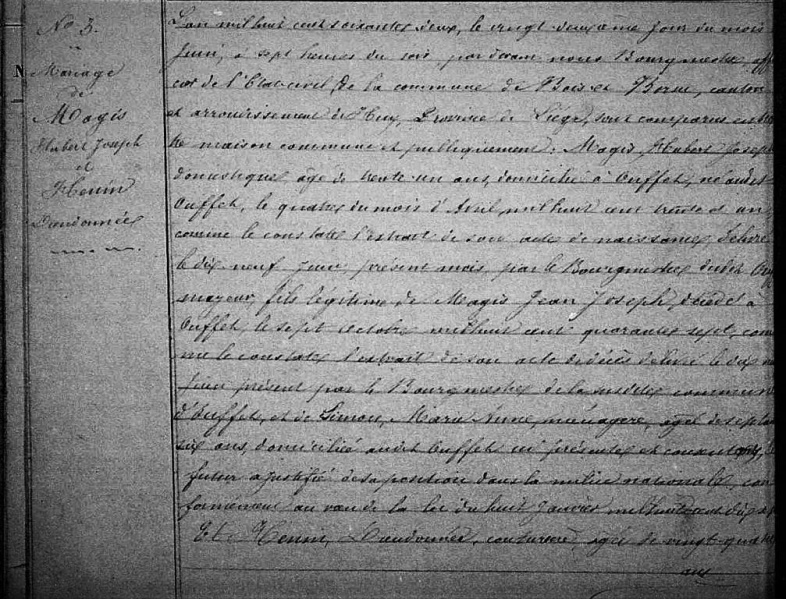 No 3.
Mariage
de
Magis
Hubert Joseph
et
Henin
Dieudonnée
L'an mil huit cent soixante deux, le vingt deuxième jour du mois
Juin, à sept heures du soir, par devant nous Bourgmestre, offi
cier de l'Etat-civil de la commune de Bois et Borsu, canton
et arrondissement de Huy, Province de Liége, sont comparus en no
tre maison commune et publiquement: Magis, Hubert Joseph
domestique, âgé de trente un ans, domicilié à Ouffet, né audit
Ouffet, le quatre du mois d'Avril mil huit cent trente et un
comme le constate l'extrait de son acte de naissance, délivré
le dix neuf Juin, présent mois, par le Bourgmestre dudit Ouf
majeur, fils légitime de Magis Jean Joseph, décédé à
Ouffet, le sept octobre mil huit cent quarante sept, com
me le constate l'extrait de son acte de décès délivré le dix n
Juin présent par le Bourgmestre de la susdite commune
d'Ouffet, et de Simon, Marie Anne, ménagère, âgée de
six ans, domicilié audit Ouffet ici présente et consentante, le
futur a justifié de sa position dans la milice nationale, con
formément au vœu de la loi du huit Janvier mil huit cent dix sept
Et Henin, Dieudonnée, couturière, âgée de vingt quatre
ans